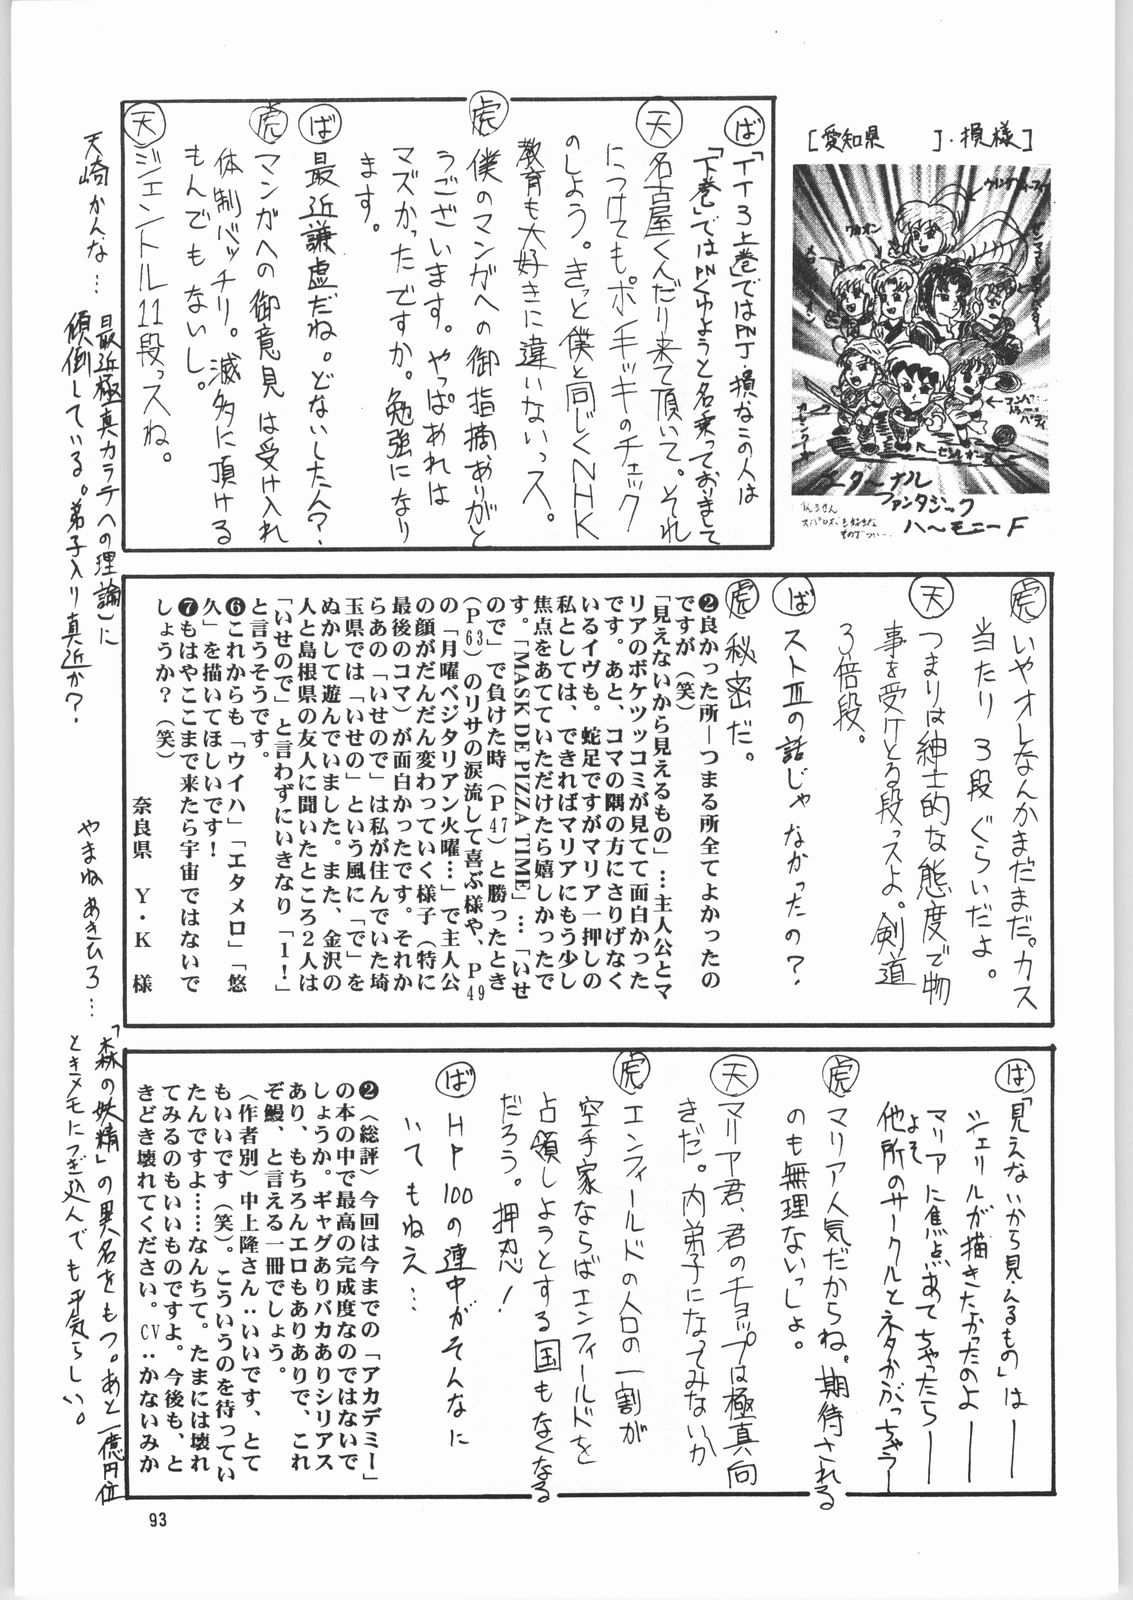 [愛知県　　]・損様]
エターナル
ファンタジーク
ハーモニーF
ば「TT3上巻」ではPNJ・損なこの人は
「下巻」ではPNくゆようと名乗っておりまして
天 名古屋くんだり来て頂いて。それ
につけても。ポンキッキのチェック
のしよう。きっと僕と同じくNHK
教育も大好きに違いないっス。
虎 僕のマンガへの御指摘ありがと
うございます。やっぱあれは
マズかったですか。勉強になり
ます。
ば 最近謙虚だね。どないした人?
虎 マンガへの御意見は受け入れ
体制バッチリ。滅多に頂ける
もんでもないし。
天 ジェントル11段っスね。
天崎かんな…
最近極真カラテへの理論に
傾倒している。弟子入り真近か?
虎 いやオレなんかまだまだ。カス
当たり3段ぐらいだよ。
天 つまりは紳士的な態度で物
事を受けとる段っスよ。剣道
3倍段。
ば ストⅢの話じゃなかったの?
虎 秘密だ。
❷良かった所―つまる所全てよかったの
ですが(笑)
「見えないから見えるもの」…主人公とマ
リアのボケツッコミが見てて面白かった
です。あと、コマの隅の方にさりげなく
いるイヴも。蛇足ですがマリア一押しの
私としては、できればマリアにもう少し
焦点をあてていただけたら嬉しかったで
す。「MASK DE PIZZA TIME」…「いせ
ので」で負けた時(P47)と勝ったとき
(P63)のリサの涙流して喜ぶ様や、P49
の「月曜ベジタリアン火曜…」で主人公
の顔がだんだん変わっていく様子(特に
最後のコマ)が面白かったです。それか
らあの「いせので」は私が住んでいた埼
玉県では「いせの」という風に「で」を
ぬかして遊んでいました。また、金沢の
人と島根県の友人に聞いたところ2人は
「いせので」と言わずにいきなり「1!」
と言うそうです。
❻これからも「ウイハ」「エタメロ」「悠
久」を描いてほしいです!
❼もはやここまで来たら宇宙ではないで
しょうか?(笑)
奈良県　Y・K　様
やまね あきひろ…
「森の妖精」の異名をもつ。あと一億円位
ときメモにつぎ込んでも平気らしい。
ば「見えないから見えるもの」は――
シェリルが描きたかったのよ――
マリアに焦点あてちゃったら――
他所のサークルとネタかぶっちゃう―
よそ
虎 マリア人気だからね。期待される
のも無理ないっしょ。
天 マリア君、君のチョップは極真向
きだ。内弟子になってみないか
虎 エンフィールドの人口の一割が
空手家ならばエンフィールドを
占領しようとする国もなくなる
だろう。押忍!
ば HP100の連中がそんなに
いてもねえ…
❷〈総評〉今回は今までの「アカデミー」
の本の中で最高の完成度なのではないで
しょうか。ギャグありバカありシリアス
あり、もちろんエロもありありで、これ
ぞ鰻、と言える一冊でしょう。
〈作者別〉中上隆さん‥いいです、とて
もいいです(笑)。こういうのを待ってい
たんですよ……なんちて。たまには壊れ
てみるのもいいものですよ。今後も、と
きどき壊れてください。CV‥かないみか
93